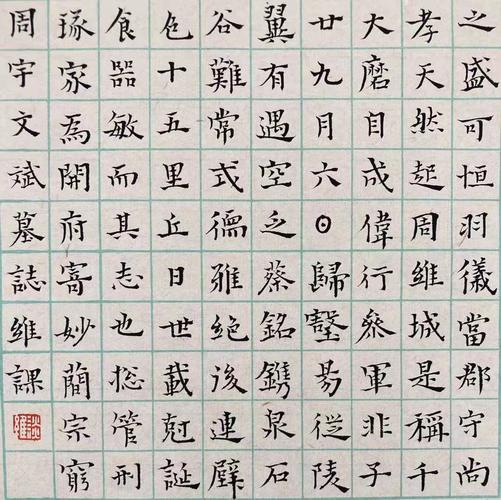 之盛可恒羽儀當郡守尚
孝天然起周維城是稱千
大磨目成偉行參軍非子
廿九月六⊙歸壑易從陵
翼有遇空乏蔡銘鐫泉石
谷難常式德雅絕後連璧
色十五里丘日世載尅誕
食器敏而其志也惣管刑
琢家為開府寄妙蕳宗窮
周宇文斌墓誌維課